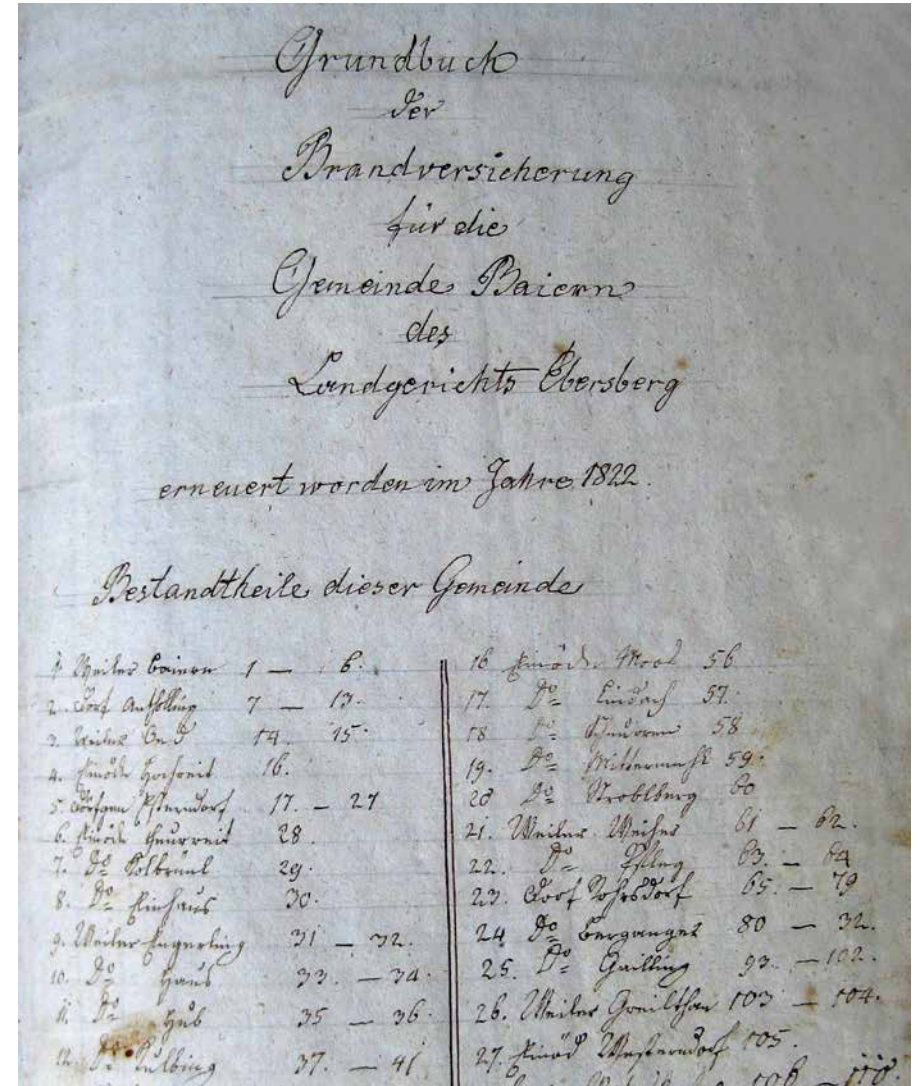 Grundbuch
der
Brandversicherung
für die
Gemeinde Baiern
des
Landgerichts Ebersberg
erneuert worden im Jahre 1822.
Bestandtheile dieser Gemeinde
1. Weiler Baiern 1 — 6.
2. Dorf Antholling 7 — 13.
3. Weiler 14. 15.
4. Einöde Hochreit 16.
5. Esterndorf 17. — 27
6. Einöde 28.
7. Do 29.
8. Do Einhaus 30.
9. Weiler Engerling 31 — 32.
10. Do Haus 33. — 34.
11. Do Hub 35 — 36.
12. Do Kulbing 37. — 41
16 Einöde Moos 56
17. Do Lindach 57.
18 Do 58
19. Do Mittermühl 59.
20 Do Stroblberg 60
21. Weiler Weiher 61 — 62.
22. Do 63. — 64
23. Dorf 65. — 79
24 Do Berganger 80 — 32.
25. Do Gailling 93. — 102.
26. Weiler Großrthan 103 — 104.
27. Einöd Westerndorf 105.